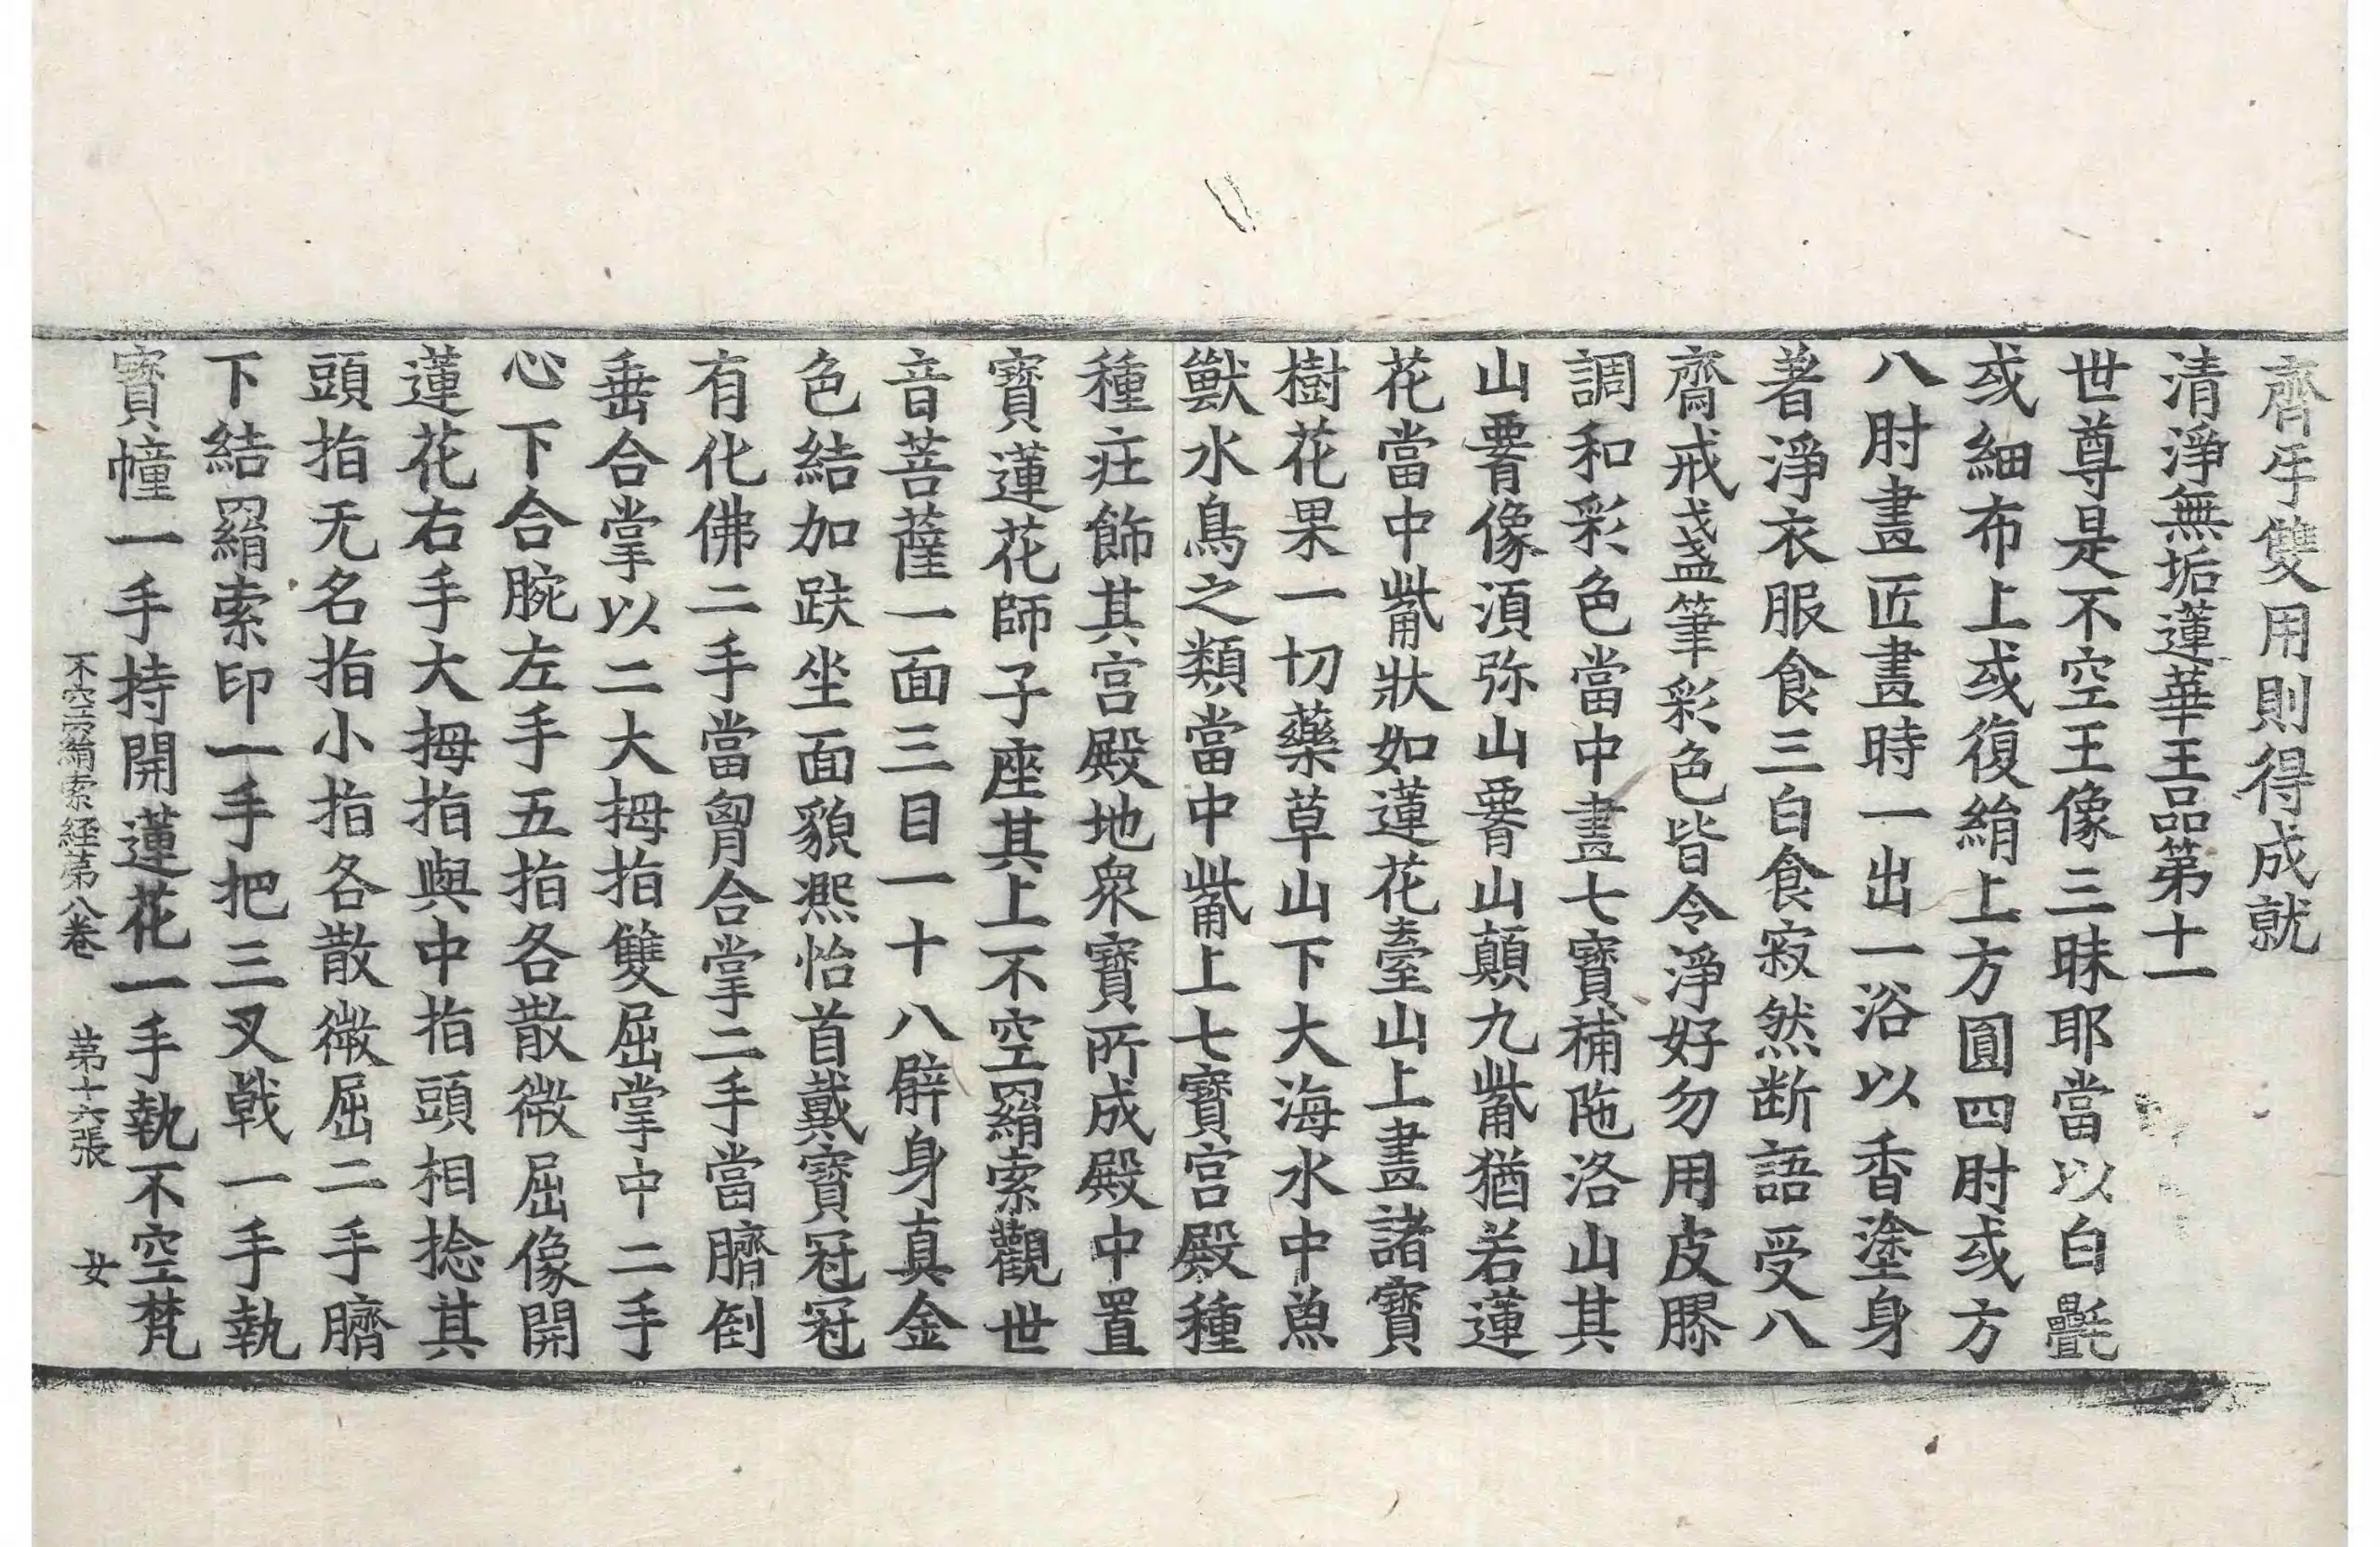 齊等雙用則得成就
清淨無垢蓮華王品第十一
世尊是不空王像三昧耶當以白㲲
或細布上或復絹上方圓四肘或方
八肘畫匠畫時一出一浴以香塗身
著淨衣服食三白食寂然断語受八
齋戒盞筆彩色皆令淨好勿用皮膠
調和彩色當中畫七寶補陁洛山其
山䯒像湏弥山䯒山顛九㭰猶若蓮
花當中㭰狀如蓮花臺山上畫諸寶
樹花果一切藥草山下大海水中魚
獸水鳥之類當中㭰上七寶宮殿種
種庄飾其宮殿地衆寶所成殿中置
寶蓮花師子座其上不空羂索觀世
音菩薩一面三目一十八臂身真金
色結加趺坐面貌熈怡首戴寶冠冠
有化佛二手當胷合掌二手當臍倒
垂合掌以二大拇指雙屈掌中二手
心下合腕左手五指各散微屈像開
蓮花右手大拇指與中指頭相捻其
頭指无名指小指各散微屈二手臍
下結羂索印一手把三叉戟一手執
寶幢一手持開蓮花一手執不空梵
不空羂索経第八卷 第十六張 女